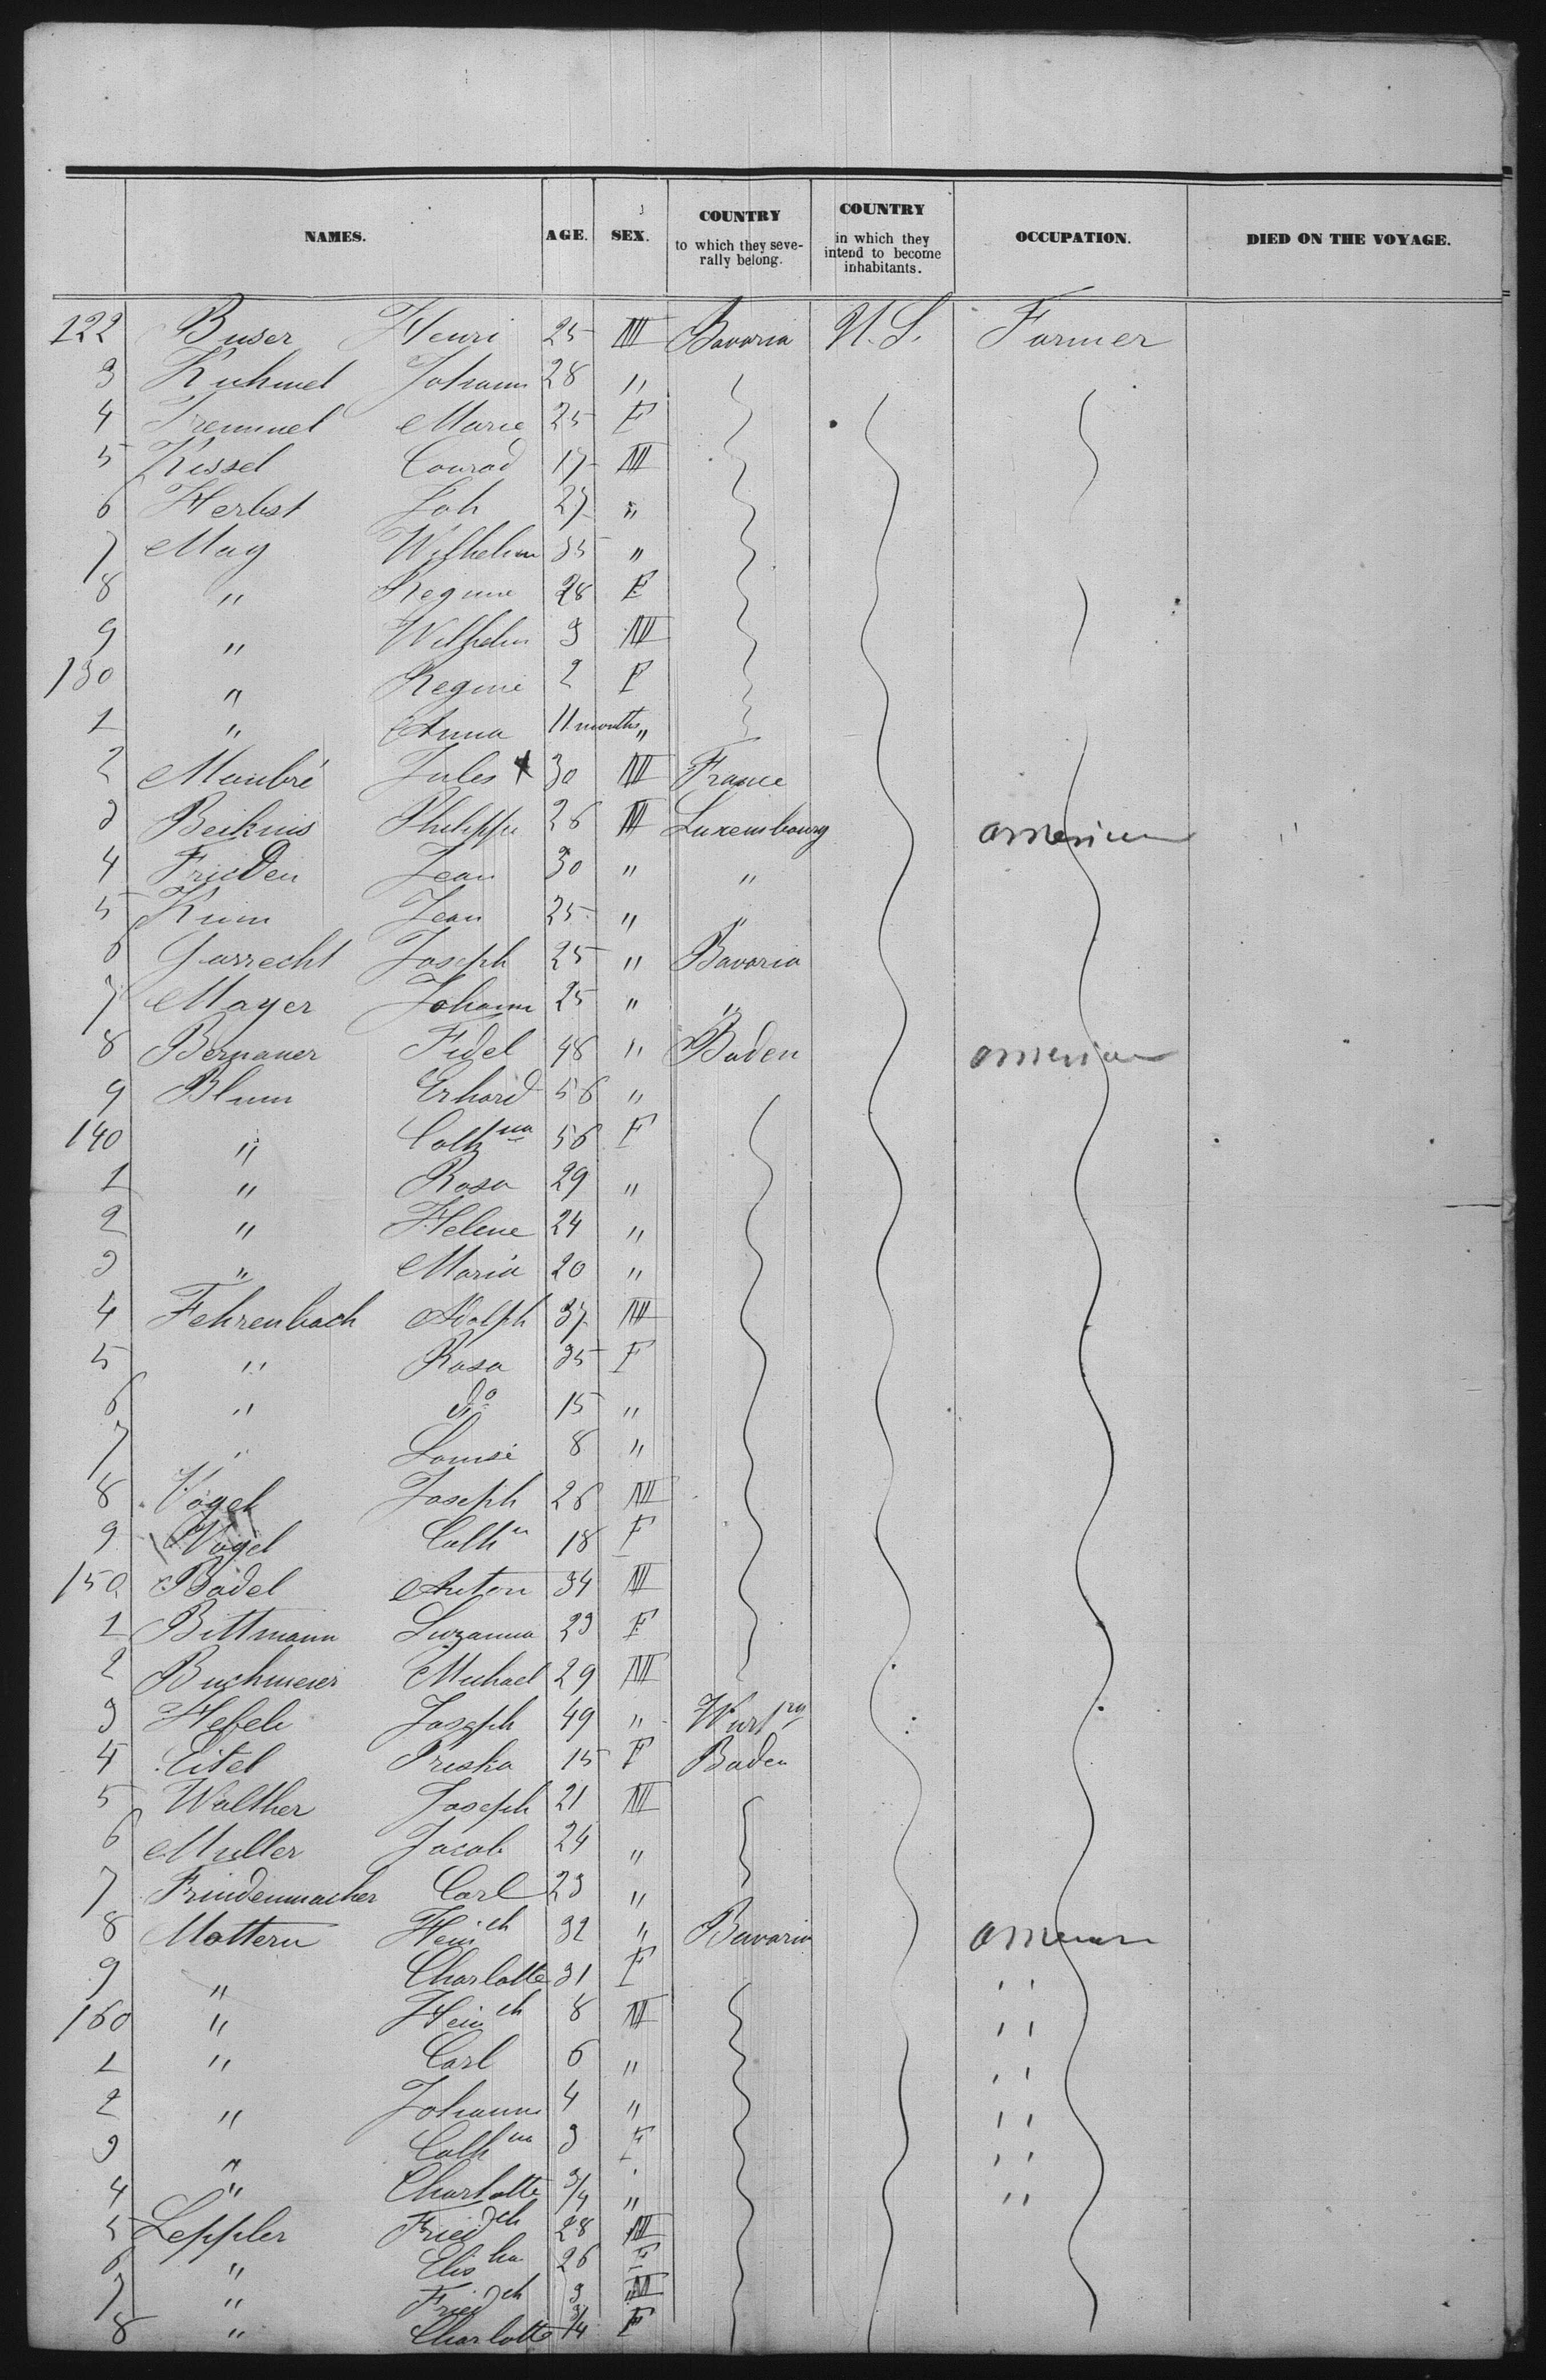 NAMES. AGE. SEX. COUNTRY to which they severally belong. COUNTRY in which they intend to become inhabitants. OCCUPATION. DIED ON THE VOYAGE.
122 Buser Henri 25 M Bavaria U.S. Farmer
3 Kuhmel Johann 28 "
4 Tremmel Marie 25 F
5 Kissel Conrad 17 M
6 Herbst Joh 27 "
7 May Wilhelm 35 "
8 " Regine 28 F
9 " Wilhelm 3 M
130 " Regine 2 F
1 " Anna 11 months "
2 Maubré Jules 30 M France
3 Beikuis Philippe 26 M Luxembourg
4 Frieden Jean 30 " "
5 Jean 25 " "
6 Garrecht Joseph 25 " Bavaria
7 Mayer Johann 25 " "
8 Bernauer Fidel 48 " Baden
9 Blum Erhard 56 "
140 " Cathna 56 F
1 " Rosa 29 "
2 " Helene 24 "
3 " Maria 20 "
4 Fehrenbach Adolph 37 M
5 " Rosa 35 F
6 " do 15 "
7 " Louise 8 "
8 Vogel Joseph 26 M
9 Vogel Cath 18 F
150 Badel Anton 34 M
1 Bittmann Suzanna 23 F
2 Buchmeier Michael 29 M
3 Hefele Joseph 49 " Wurtrg
4 Eitel Priska 15 F Baden
5 Walther Joseph 21 M
6 Muller Jacob 24 "
7 Frindenmacher Carl 23 "
8 Mattern Heinch 32 " Bavaria
9 " Charlotte 31 F "
160 " Heinch 8 M "
1 " Carl 6 " "
2 " Johann 4 " "
3 " Cathna 3 F "
4 " Charlotte 3/4 " "
5 Leppler Friedch 28 M
6 " Elis 26 F
7 " Friedch 3 M
8 " Charlotte 3/4 F